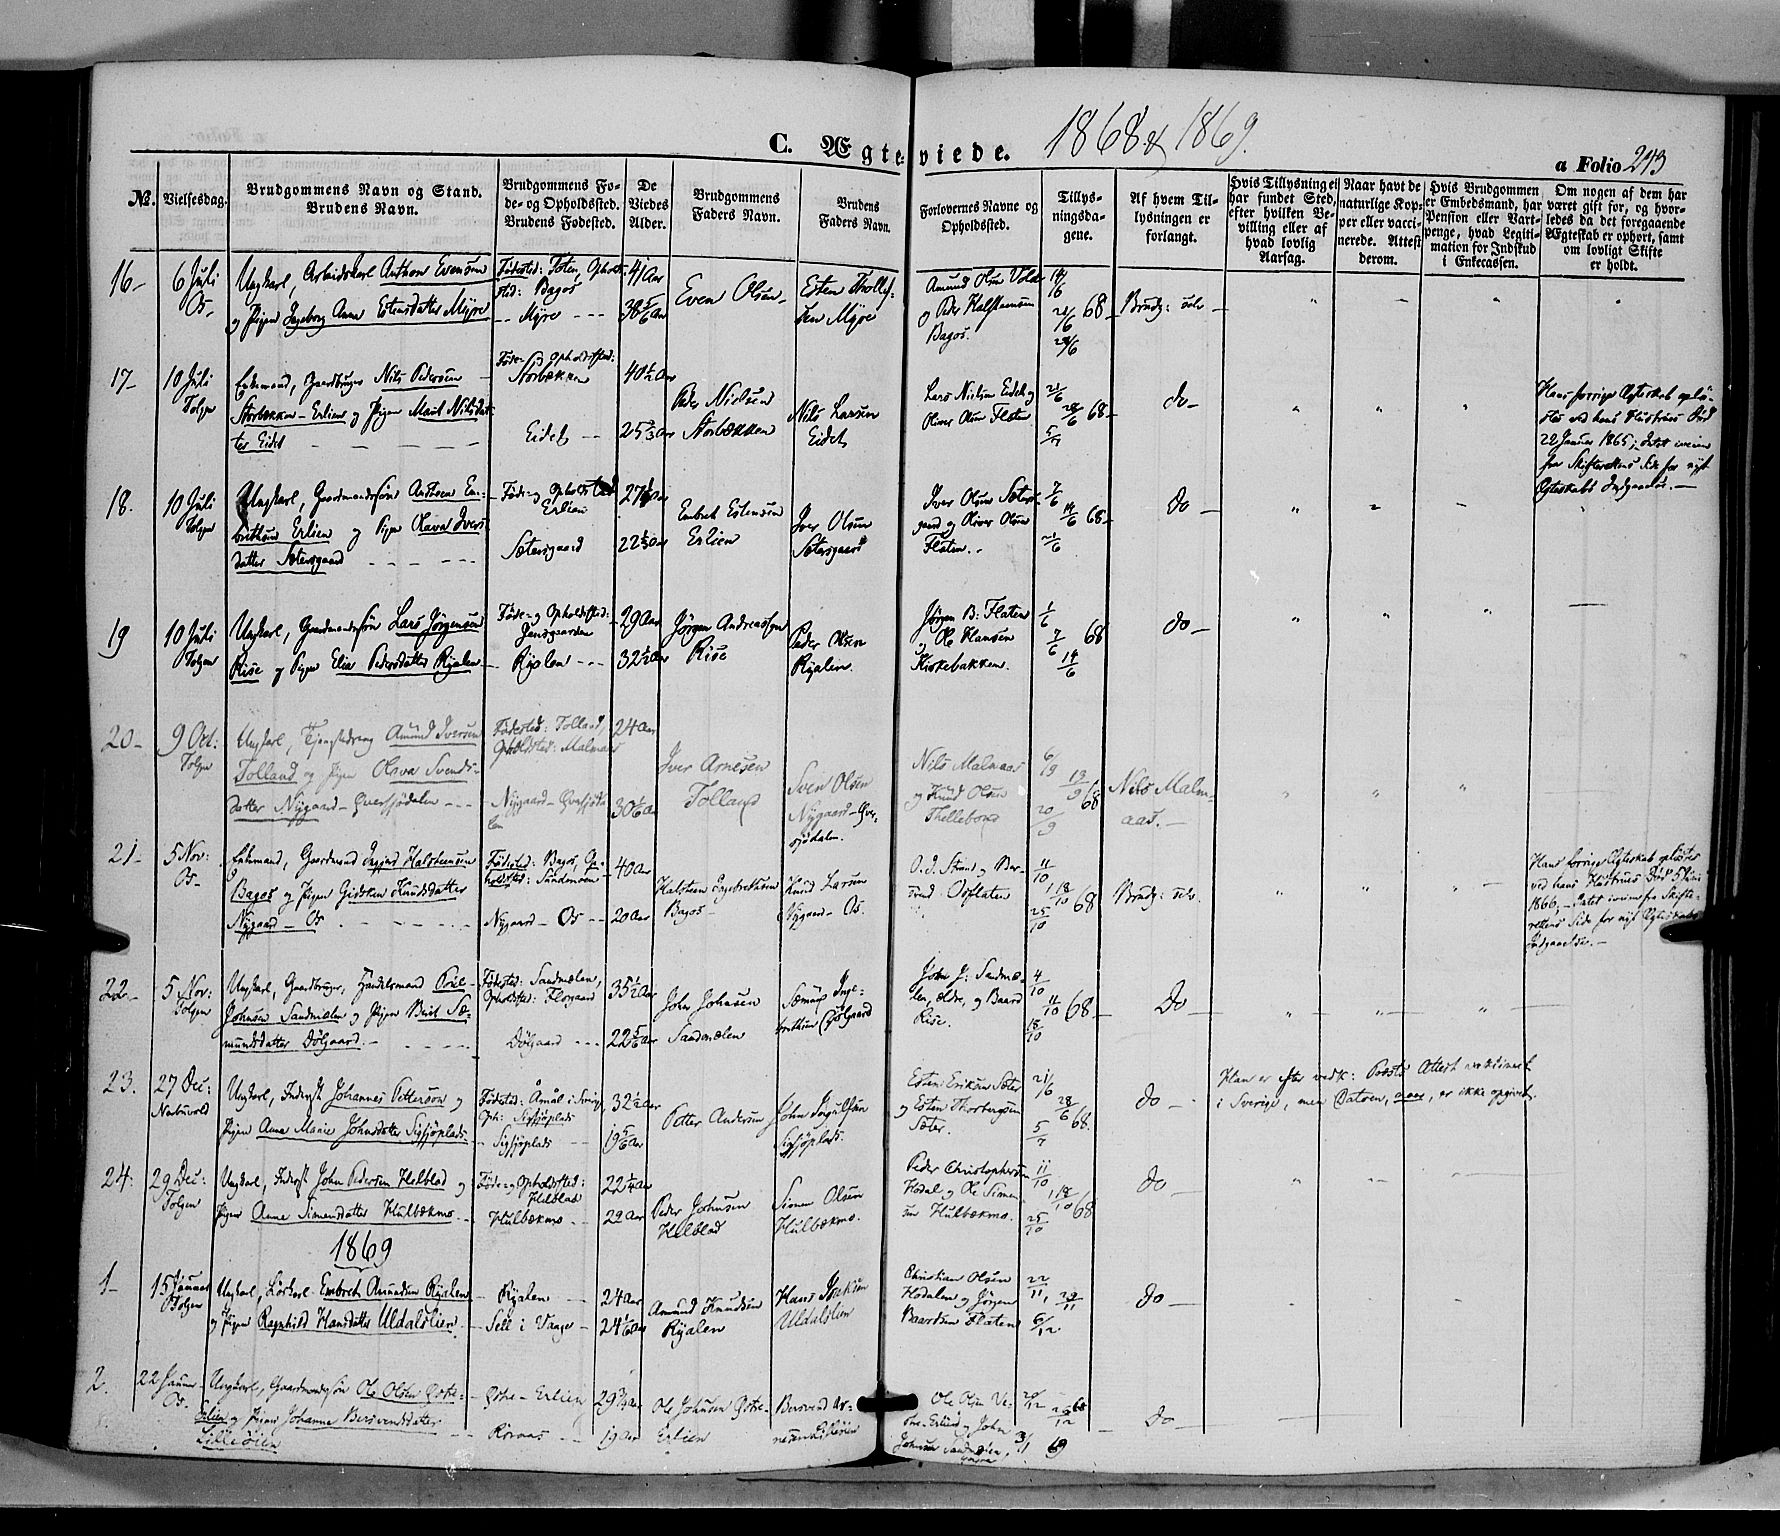 C. Ægteviede. 1868 & 1869.
a Folio 243
No.
Vielsesdag.
Brudgommens Navn og Stand.
Brudens Navn.
Brudgommens Fø-
de- og Opholdssted.
Brudens Fødested.
De
Viedes
Alder.
Brudgommens
Faders Navn.
Brudens
Faders Navn.
Forlovernes Navne og
Opholdssted.
Tillys-
ningsda-
gene.
Af hvem Til-
lysningen er
forlangt.
Hvis Tillysning ei
har fundet Sted,
efter hvilken Be-
villing eller af
hvad lovlig
Aarsag.
Naar havt de
naturlige Kop-
per eller vacci-
nerede. Attest
derom.
Hvis Brudgommen
er Embedsmand, har
Pension eller Vart-
penge, hvad Legiti-
mation for Indskud
i Enkecassen.
Om nogen af dem har
været gift før, og hvor-
ledes da det foregaaende
Ægteskab er ophørt, samt
om lovligt Skifte
er holdt.
16-
6 Juli
Os-
Ungkarl, Arbeidskarl Anthon Evensen
og Pigen Ingeborg Anna Estensdatter Myre
Fødested: Toten, Ophold-
sted: Bagos
-- Myre ---
41 Aar
38 5/6 Aar
Even Olsen
Esten Thollef-
sen Myre
Amund Olsen
og Peder Halsteensen
Bagos.
14/6
21/6 68-
28/6
Brudg: selv-
17-
10 Juli
Tolgen
Enkemand, Gaardbruger Nils Pedersen
Storbækken-Erlien og Pigen Marit Nilsdat-
ter Eidet
Føde- og Opholdssted:
Storbækken
Eidet --
40 1/2 Aar
25 2/3 Aar
Peder Nielsen
Storbækken
Nils Larsen
Eidet
Lars Nielsen Eidet og
Oliver Olsen Flaten
21/6
28/6 68-
5/7
do-
Hans forrige Ægteskab oplø-
stes ved hans Hustrues Død
22 Januar 1865; Intet iveien
fra Skifterettens Side for nyt
Ægteskabs Indgaaelse.-
18.
10 Juli
Tolgen
Ungkarl, Gaardmandssøn Anthon Em-
brethsen Erlien og Pigen Olava Ivers-
datter Sætersgaard
Føde- og Opholdssted
Erlien
Sætersgaard
Embret Estensen
Erlien
Iver Olsen
Sætersgaard
Iver Olsen Sæters-
gaard og Oliver Olsen
Flaten.
7/6
14/6 68-
21/6
do-
19
10 Juli
Tolgen
Ungkarl, Gaardmandssøn Lars Jørgensen
Rise og Pigen Elia Pedersdatter Ryalen
Føde- og Opholdssted:
Ryalen ---
29 Aar
32 1/2 Aar
Jørgen Andreassen
Rise
Peder Olsen
Ryalen.
Jørgen B: Flaten
og Ole Hansen
Kirkebakken.
1/6
7/6 68
14/6
do-
20-
9 Oct:
Tolgen
Ungkarl, Tjenestedreng Amund Iversen
Tolland og Pigen Olava Svends-
datter Nygaard-Øversjødalen ---
Fødested: Tolland,
Opholdssted: Malmaas
Nygaard-Øversjøda-
len
24 Aar
30 1/6 Aar
Iver Arnesen
Tolland
Sven Olsen
Nygaard-Øver-
sjødalen.
Nils Malmaas
og Knud Olsen
Thellebond
6/9
13/9 68
20/9
Nils Malm-
aas.-
21-
5 Nov:
Os-
Enkemand, Gaardmand Halsteensen
Bagos og Pigen Gidsken Knudsdatter
Nygaard-Os
Fødested: Bagos, Op-
holdssted: Sundmoen-
Nygaard-Os--
40 Aar
20 Aar
Halsteen Ingebrethsen
Bagos-
Knud Larsen
Nygaard-Os.
O. J. Strand og Ber-
svend Osflaten
11/10
18/10 68
25/10
Brudg: selv.
Hans forrige Ægteskab opløstes
ved hans Hustrues Død
1866,- Intet iveien fra Skifte-
rettens Side for nyt Ægteskabs
Indgaaelse.-
22-
5 Nov:
Tolgen
Ungkarl, Gaardbruger, Handelsmand
Johnsen Sandmælen og Pigen Berit Sæ-
mundsdatter Dølgaard.-
Fødested: Sandmælen,
Opholdssted: Florgaard
Dølgaard ---
35 1/2 Aar
22 5/6 Aar
John Johnsen
Sandmælen
Sæmund Inge-
brethsen Dølgaard
John J: Sandmæ-
len, ældre, og Baard
Rise.
4/10
11/10 68-
18/10
Do
23.
27 Dec:
Narbuvold
Ungkarl, Inderst Johannes Petterson og
Pigen Anna Marie Johnsdatter Sigsjøplads
Fødested: Åmål i Sverig
Oph: Sigsjøplads
- Sigsjøplads --
32 1/2 Aar
19 5/6 Aar
Petter Andersen
John Ingulfsen
Sigsjøplads.
Esten Eriksen Sæter
og Esten Thorbergsen
Sæter.
21/6
28/6 68.
5/7
do-
Han er efter vedk: Præsts Attest vaksineret
i Sverige, men Datoen, naar, er ikke opgivet.
24.
29 Dec:
Tolgen
Ungkarl, Inderst John Pedersen Helblad og
Pigen Anna Simensdatter Hulbækmo
Føde- og Opholdssted:
Helblad
Hulbækmo --
22 1/4 Aar
22 Aar
Peder Johnsen
Helblad
Simen Olsen
Hulbækmo.
Peder Christophersen
Hodal og Ole Simen-
sen Hulbækmo.
11/10
18/10 68
25/10
do-
1869
1-
15 Januar
Tolgen
Ungkarl, Embret Amundsen Ryalen
og Pigen Ragnhild Hansdatter Uldalslien
- Ryalen --
- Sell i Vaage --
24 Aar
24 1/6 Aar
Amund Knudsen
Ryalen
Hans
Uldalslien
Christian Olsen
Hodalen og Jørgen
Baardsen Flaten
22/11,
29/11
6/12
do-
2.
22 Januar
Os.
Ungkarl, Gaardmandssøn Ole Olsen Østre-
Erlien og Pigen Johanne Bersvendsdatter
Lilleøien
- Østre-Erlien
- Røraas --
29 3/4 Aar
19 Aar
Ole Johnsen Østre-
Erlien
Bersvend Ar-
nesen Lilleøien
Ole Olsen Ve-
stre-Erlien og John
Johnsen Sandmælen,
yngre
20/12
68
3/1 69
do-